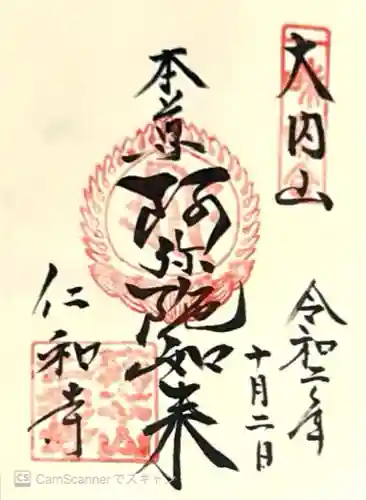 大内山
本尊
阿弥陀如来
仁和寺
令和二年
十月二日
CS CamScannerでスキャン